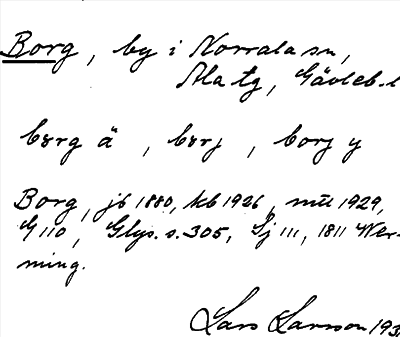 Borg, by i Norrala sn,
Ala tg, Gävleb. l
bɤrg ä, bɤrj, borj y
Borg, jb 1880, kb 1926, mtl 1929,
G 110, Glys. s. 305, Sj 111, 1811 Wer-
ming.
Lars Larsson 193